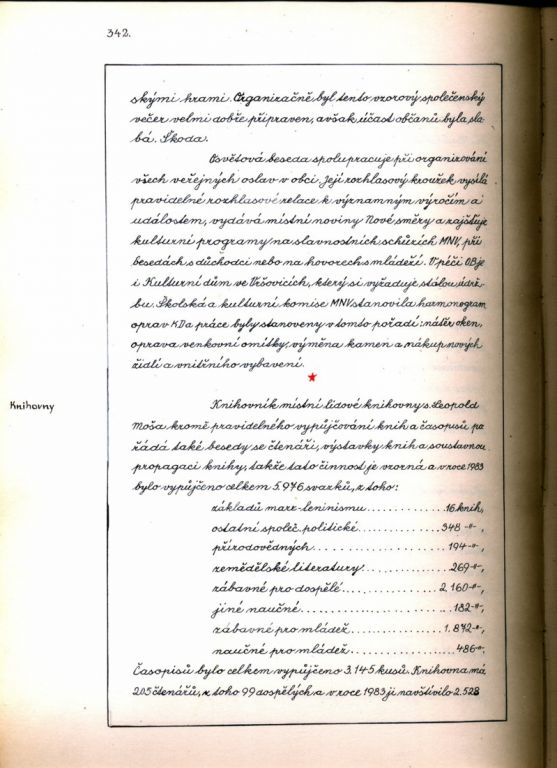 342.
skými hrami. Organizačně byl tento vzorový společenský
večer velmi dobře připraven, avšak účast občanů byla sla-
bá. Škoda.
Osvětová beseda spolupracuje při organizování
všech veřejných oslav v obci. Její rozhlasový kroužek vysílá
pravidelné rozhlasové relace k významným výročím a
událostem, vydává místní noviny Nové směry a zajišťuje
kulturní programy na slavnostních schůzích MNV, při
besedách s důchodci nebo na hovorech s mládeží. V péči OB je
i Kulturní dům ve Vršovicích, který si vyžaduje stálou údrž-
bu. Školská a kulturní komise MNV stanovila harmonogram
oprav KD a práce byly stanoveny v tomto pořadí: nátěr oken,
oprava venkovní omítky, výměna kamen a nákup nových
židlí a vnitřního vybavení.
Knihovny
Knihovník místní lidové knihovny s. Leopold
Moša kromě pravidelného vypůjčování knih a časopisů po
řádá také besedy se čtenáři, výstavky knih a soustavnou
propagaci knihy, takže tato činnost je vzorná a v roce 1983
bylo vypůjčeno celkem 5.976 svazků, z toho:
základů marx-leninismu..............16 knih,
ostatní společ. politické..............348 -"-,
přírodovědných..............194 -"-,
zemědělské literatury..............269 -"-,
zábavné pro dospělé..............2.160 -"-,
jiné naučné..............182 -"-,
zábavné pro mládež..............1.872 -"-,
naučné pro mládež..............486 -"-.
Časopisů bylo celkem vypůjčeno 3.145 kusů. Knihovna má
205 čtenářů, z toho 99 dospělých a v roce 1983 ji navštívilo 2.528